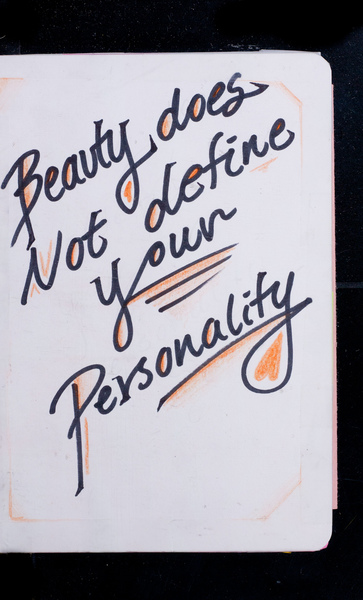 Beauty does
Not define
Your
Personality